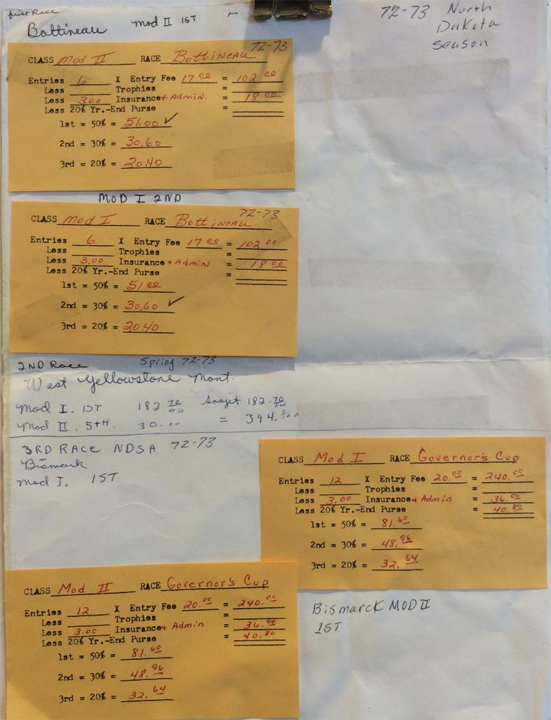 first Race
Bottineau Mod II 1ST
72-73 North
Dakota
Season
72-73
CLASS Mod II RACE Bottineau
Entries 6 X Entry Fee 17 00 = 102 00
Less Trophies =
Less 3.00 Insurance + Admin. = 18 00
Less 20% Yr.-End Purse
1st = 50% = 51.00 ✓
2nd = 30% = 30.60
3rd = 20% = 20.40
MOD I 2ND
72-73
CLASS Mod I RACE Bottineau
Entries 6 X Entry Fee 17 00 = 102 00
Less Trophies =
Less 3.00 Insurance + Admin = 18 00
Less 20% Yr.-End Purse =
1st = 50% = 51 00
2nd = 30% = 30.60 ✓
3rd = 20% = 20.40
2ND Race Spring 72-73
West Yellowstone Mont.
Mod I. 1ST 182.70 Snojet 182.70
Mod II. 5TH. 30.00 = 394.
3RD RACE NDSA 72-73
Bismark
Mod I. 1ST
CLASS Mod I RACE Governor's Cup
Entries 12 X Entry Fee 20.00 = 240.00
Less Trophies =
Less 3.00 Insurance + Admin = 36.00
Less 20% Yr.-End Purse = 40.80
1st = 50% = 81.60
2nd = 30% = 48.96
3rd = 20% = 32.64
CLASS Mod II RACE Governor's Cup
Entries 12 X Entry Fee 20.00 = 240.00
Less Trophies =
Less 3.00 Insurance + Admin = 36.00
Less 20% Yr.-End Purse = 40.80
1st = 50% = 81.60
2nd = 30% = 48.96
3rd = 20% = 32.64
Bismarck MOD II
1ST